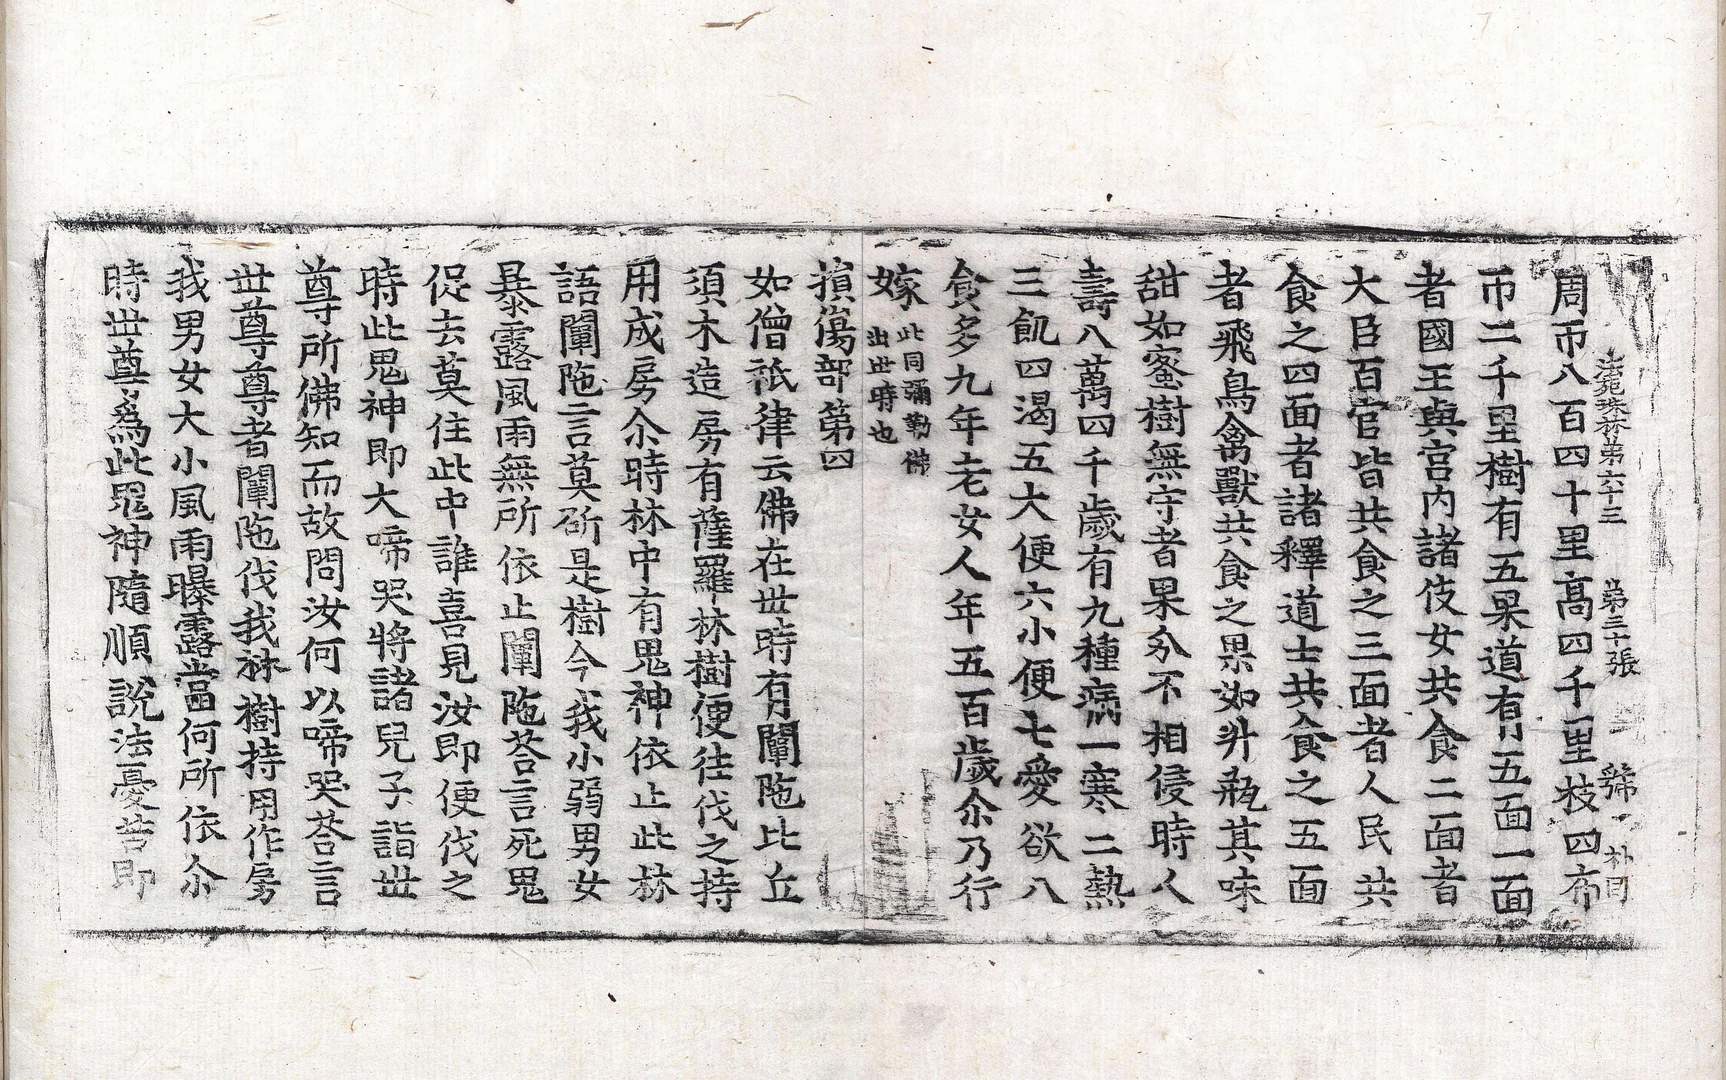 法苑珠林第六十三 第三十張 號 朴同
周帀八百四十里髙四千里枝四布
帀二千里樹有五果道有五面一面
者國王與宮内諸伎女共食二面者
大臣百官皆共食之三面者人民共
食之四面者諸釋道士共食之五面
者飛鳥禽獸共食之果如升瓶其味
甜如蜜樹無守者果亦不相侵時人
壽八萬四千歲有九種病一寒二熱
三飢四渴五大便六小便七愛欲八
食多九年老女人年五百歲尒乃行
嫁 此同彌勒佛出世時也
損傷部第四
如僧祇律云佛在世時有闡陁比丘
須木造房有薩羅林樹便往伐之持
用成房尒時林中有鬼神依止此林
語闡陁言莫斫是樹今我小弱男女
暴露風雨無所依止闡陁荅言死鬼
促去莫住此中誰喜見汝即便伐之
時此鬼神即大啼哭將諸兒子詣世
尊所佛知而故問汝何以啼哭荅言
世尊尊者闡陁伐我林樹持用作房
我男女大小風雨曝露當何所依尒
時世尊爲此鬼神隨順說法憂苦即